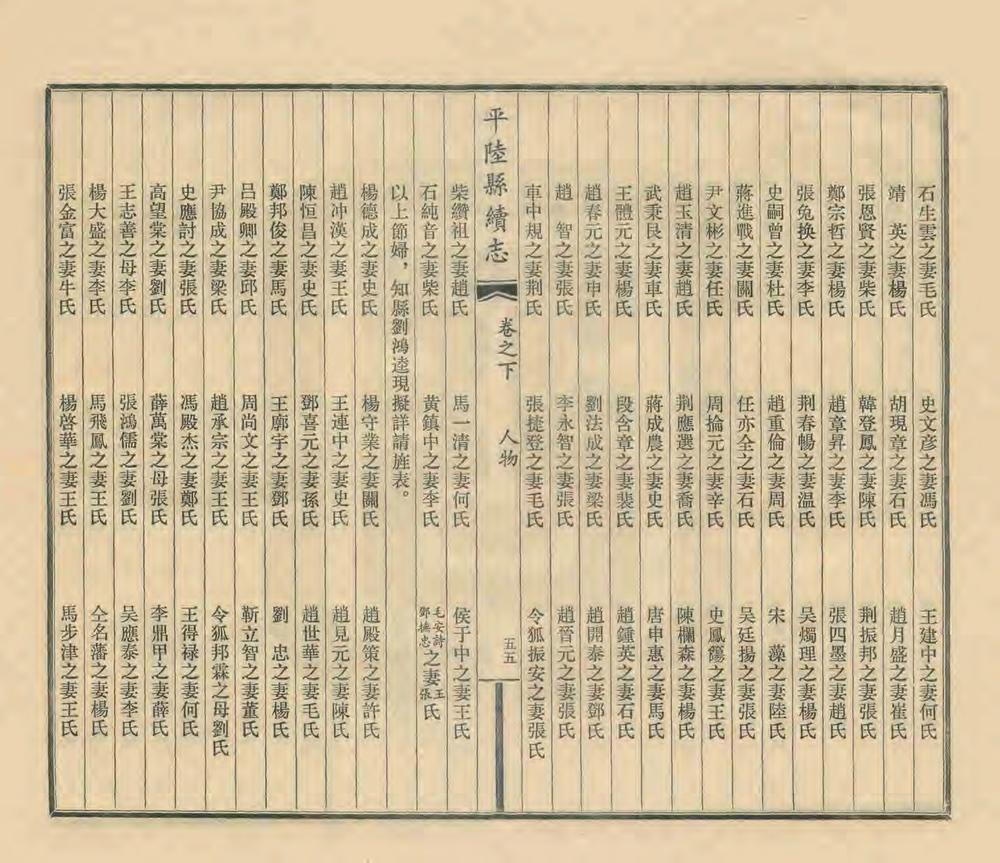 石生雲之妻毛氏　史文彥之妻馮氏　王建中之妻何氏
靖　英之妻楊氏　胡現章之妻石氏　趙月盛之妻崔氏
張恩賢之妻柴氏　韓登鳳之妻陳氏　荆振邦之妻張氏
鄭宗哲之妻楊氏　趙章昇之妻李氏　張四墨之妻趙氏
張兔换之妻李氏　荆春暢之妻温氏　吳燭理之妻楊氏
史嗣曾之妻杜氏　趙重倫之妻周氏　宋　藻之妻陸氏
蔣進戰之妻關氏　任亦全之妻石氏　吳廷揚之妻張氏
尹文彬之妻任氏　周掄元之妻辛氏　史鳳籞之妻王氏
趙玉清之妻趙氏　荆應選之妻喬氏　陳欄森之妻楊氏
武秉艮之妻車氏　蔣成農之妻史氏　唐申惠之妻馬氏
王體元之妻楊氏　段含章之妻裴氏　趙鍾英之妻石氏
趙春元之妻申氏　劉法成之妻梁氏　趙開泰之妻鄧氏
趙　智之妻張氏　李永智之妻張氏　趙晉元之妻張氏
車中規之妻荆氏　張捷登之妻毛氏　令狐振安之妻張氏
平陸縣續志　卷之下　人物　五五
柴纘祖之妻趙氏　馬一清之妻何氏　侯于中之妻王氏
石純音之妻柴氏　黄鎮中之妻李氏　毛安詩鄧撫忠之妻王張氏
以上節婦，知縣劉鴻逵現擬詳請旌表。
楊德成之妻史氏　楊守業之妻關氏　趙殿策之妻許氏
趙冲漢之妻王氏　王連中之妻史氏　趙見元之妻陳氏
陳恒昌之妻史氏　鄧喜元之妻孫氏　趙世華之妻毛氏
鄭邦俊之妻馬氏　王廓宇之妻鄧氏　劉　忠之妻楊氏
吕殿卿之妻邱氏　周尚文之妻王氏　靳立智之妻董氏
尹協成之妻梁氏　趙承宗之妻王氏　令狐邦霖之母劉氏
史應討之妻張氏　馮殿杰之妻鄭氏　王得禄之妻何氏
高望棠之妻劉氏　薛萬棠之母張氏　李鼎甲之妻薛氏
王志善之母李氏　張鴻儒之妻劉氏　吴應泰之妻李氏
楊大盛之妻李氏　馬飛鳳之妻王氏　仝名藩之妻楊氏
張金富之妻牛氏　楊啓華之妻王氏　馬步津之妻王氏